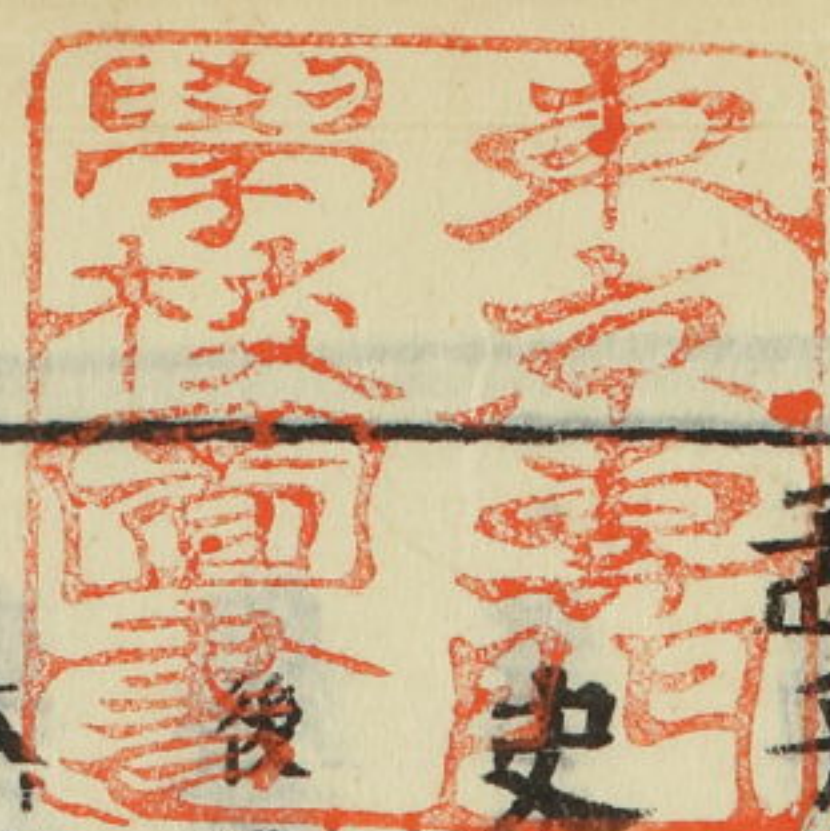 東京專門
學校圖書
史
後